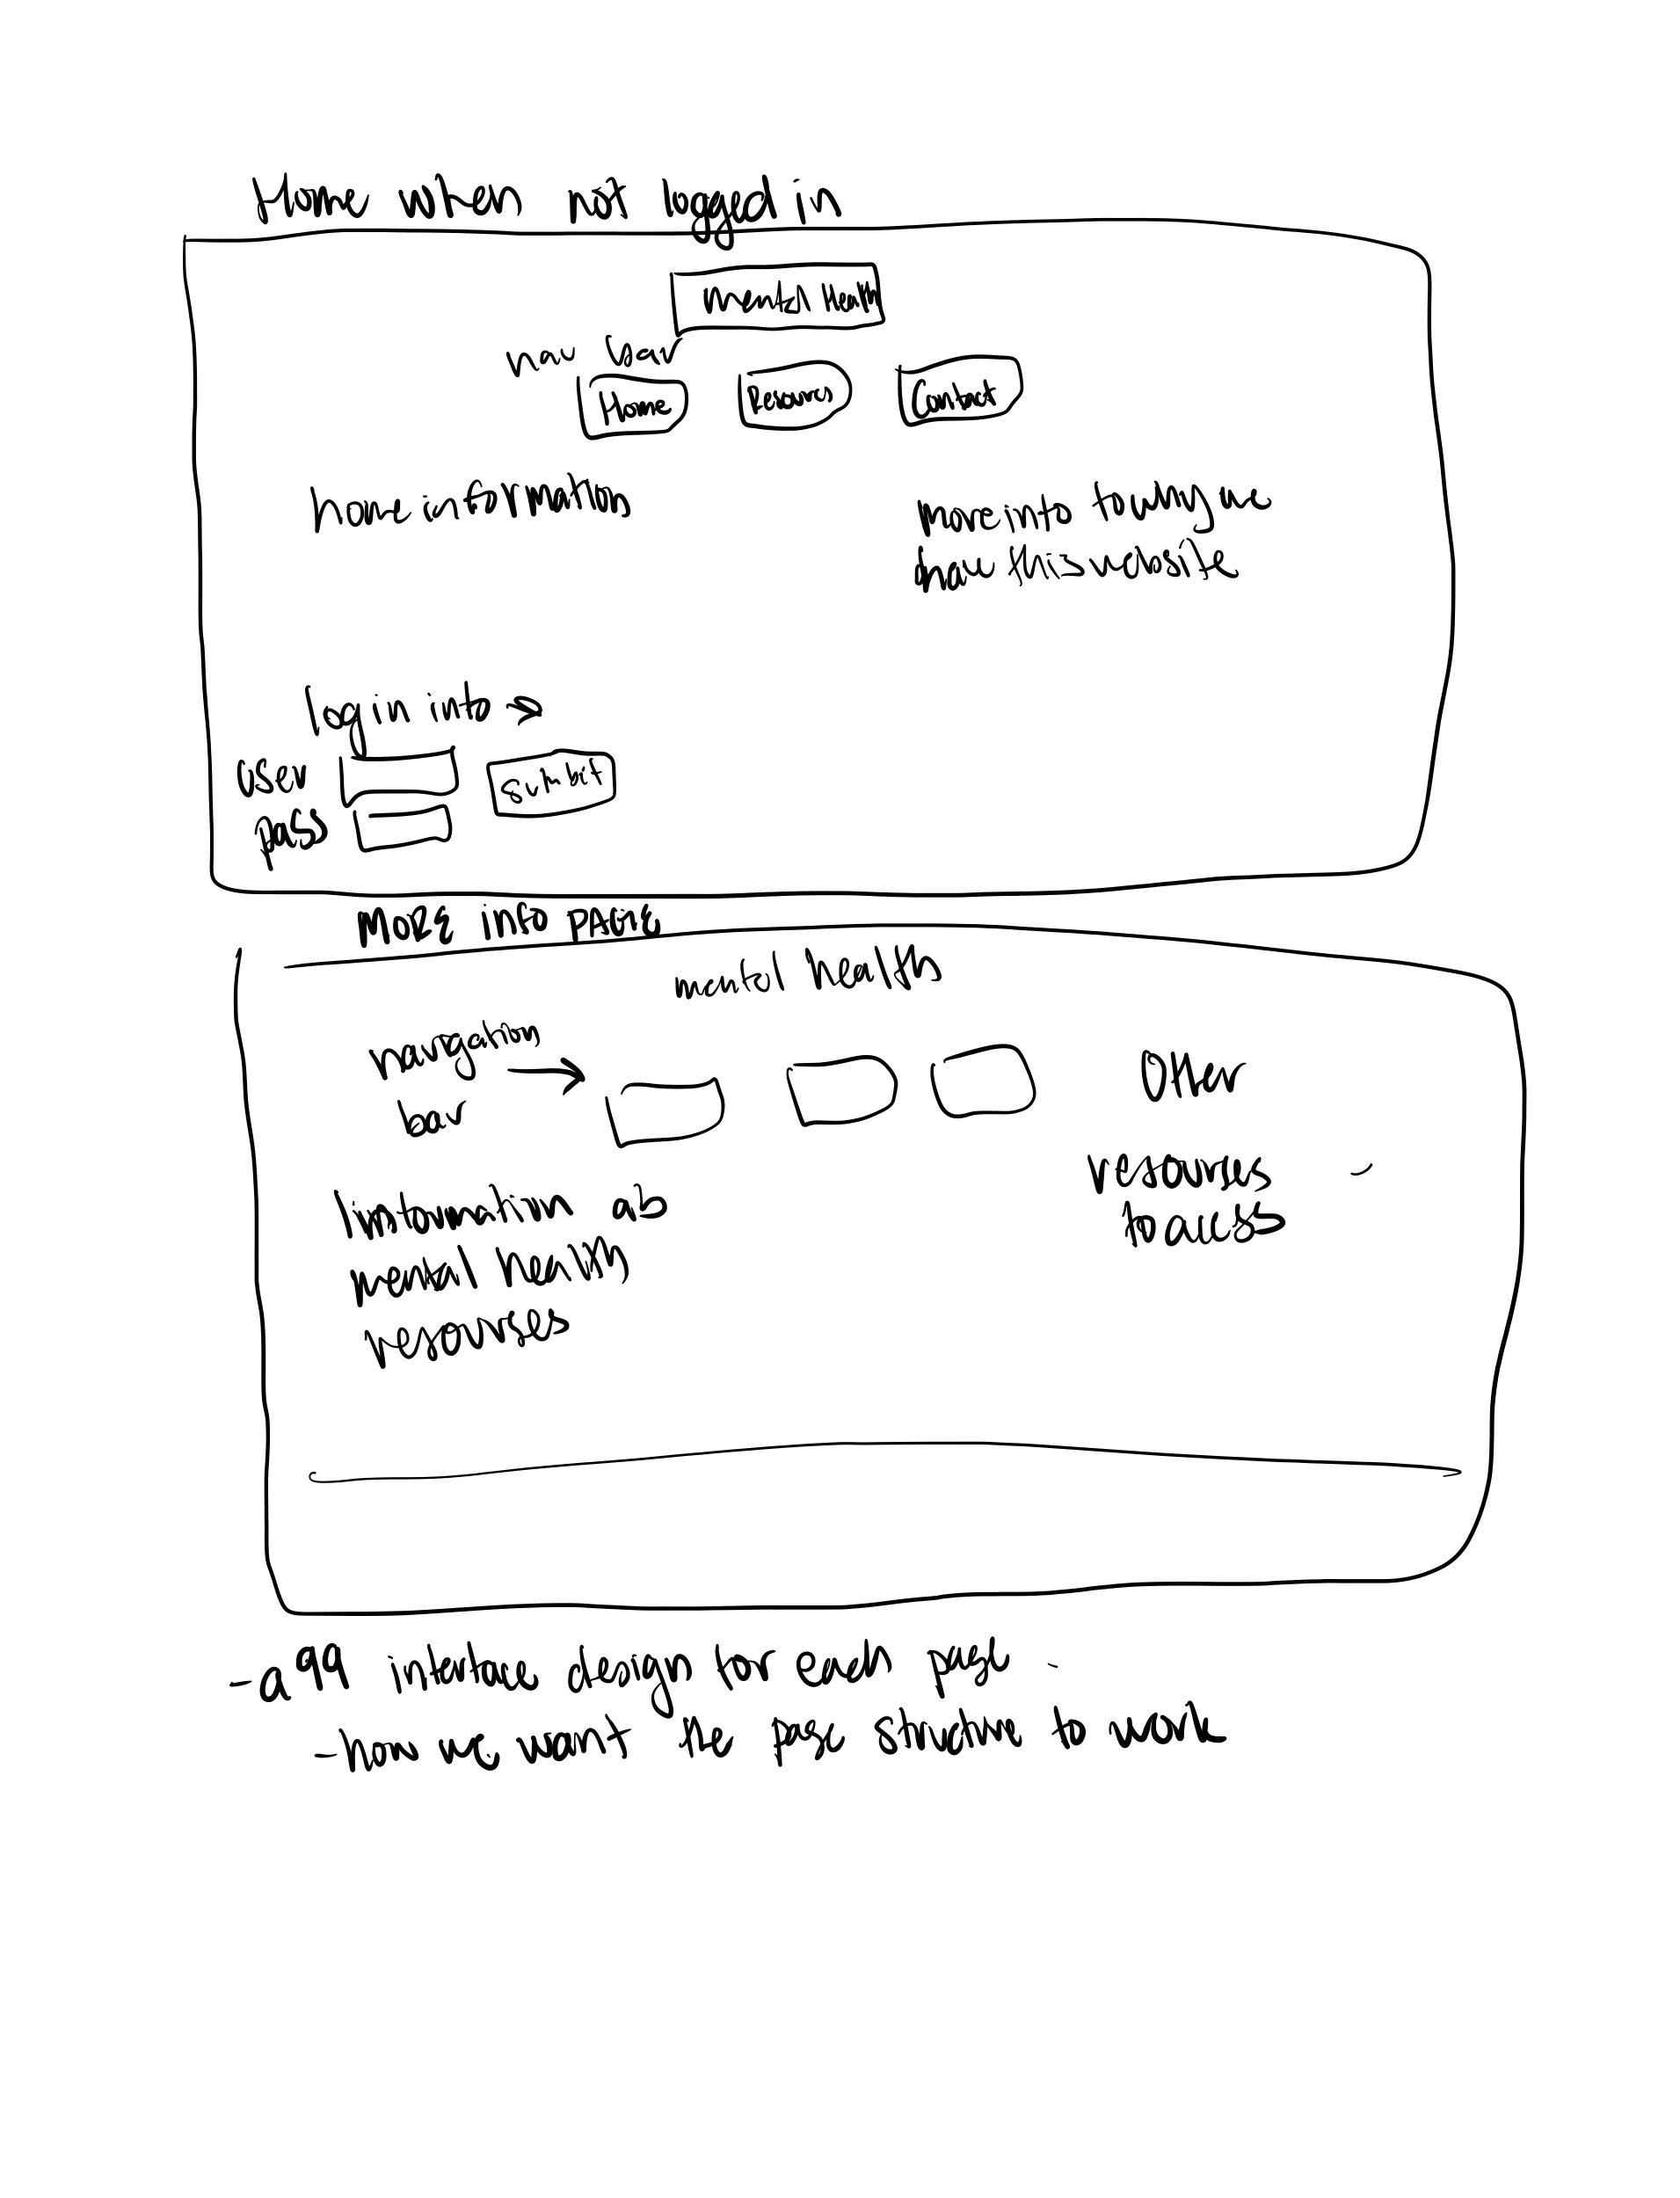 Home when not logged in
mental Health
nav bar
Home
Contact
home information
more info to why we
have this website
login info →
user
submit
pass
MORE info PAGE
mental health
navigation
bar
other
resources
to discuss
Information ab
mental health
resources
interface design for each page
- how we want the page structure to work